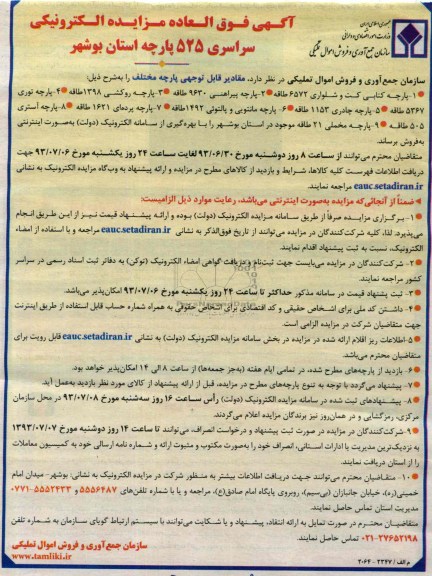 جمهوری اسلامی ایران
وزارت امور اقتصادی و دارائی
سازمان جمع آوری و فروش اموال تملیکی
آگهی فوق العاده مزایده الکترونیکی
سراسری ۵۲۵ پارچه استان بوشهر
سازمان جمع‌آوری و فروش اموال تملیکی در نظر دارد، مقادیر قابل توجهی پارچه مختلف را به‌شرح ذیل:
۱-پارچه کتابی کت و شلواری ۶۵۷۲ طاقه ۲-پارچه پیراهنی ۹۶۳۰ طاقه ۳-پارچه روکشی ۱۳۹۸ طاقه ۴-پارچه توری
۵۳۶۷ طاقه ۵-پارچه چادری ۱۱۵۳ طاقه ۶-پارچه مانتویی و پالتوئی ۱۴۹۲ طاقه ۷-پارچه پرده‌ای ۱۶۲۱ طاقه ۸-پارچه آستری
۵۰۵ طاقه ۹-پارچه مخملی ۲۱ طاقه موجود در استان بوشهر را با بهره‌گیری از سامانه الکترونیک (دولت) به‌صورت اینترنتی
به‌فروش برساند.
متقاضیان محترم می‌توانند از ساعت ۸ روز دوشنبه مورخ ۹۳/۰۶/۳۰ لغایت ساعت ۲۴ روز یکشنبه مورخ ۹۳/۰۷/۰۶ جهت
دریافت اطلاعات فهرست کلیه کالاها، شرایط و بازدید از کالاهای مطرح در مزایده و ارائه پیشنهاد به وبگاه مزایده الکترونیک به نشانی
eauc.setadiran.ir مراجعه نمایند.
ضمناً از آنجائی‌که مزایده به‌صورت اینترنتی می‌باشد، رعایت موارد ذیل الزامیست:
۱- برگزاری مزایده صرفاً از طریق سامانه مزایده الکترونیک (دولت) بوده و ارائه پیشنهاد قیمت نیز از این طریق انجام
می‌پذیرد. لذا، کلیه شرکت‌کنندگان در مزایده می‌توانند از تاریخ فوق‌الذکر به نشانی eauc.setadiran.ir مراجعه و با استفاده از امضاء
الکترونیک، نسبت به ثبت پیشنهاد اقدام نمایند.
۲- شرکت‌کنندگان در مزایده می‌بایست جهت ثبت‌نام و دریافت گواهی امضاء الکترونیک (توکن) به دفاتر ثبت اسناد رسمی در سراسر
کشور مراجعه نمایند.
۳- ثبت پیشنهاد قیمت در سامانه مذکور حداکثر تا ساعت ۲۴ روز یکشنبه مورخ ۹۳/۰۷/۰۶ امکان‌پذیر می‌باشد.
۴- داشتن کد ملی برای اشخاص حقیقی و کد اقتصادی برای اشخاص حقوقی به همراه شماره حساب قابل استفاده از طریق اینترنت
جهت متقاضیان شرکت در مزایده الزامی است.
۵-اطلاعات ریز اقلام ارائه شده در مزایده در بخش سامانه مزایده الکترونیک (دولت) به نشانی eauc.setadiran.ir قابل رویت برای
متقاضیان محترم می‌باشد.
۶- بازدید از پارچه‌های مطرح شده، در تمامی ایام هفته (به‌جز جمعه‌ها) از ساعت ۸ الی ۱۴ امکان‌پذیر خواهد بود.
۷- پیشنهاد می‌گردد با توجه به تنوع پارچه‌های مطرح در مزایده، قبل از ارائه پیشنهاد از کالای مورد نظر بازدید به‌عمل آید.
۸- پیشنهادهای ثبت شده در سامانه مزایده الکترونیک (دولت) رأس ساعت ۱۶ روز سه‌شنبه مورخ ۹۳/۰۷/۰۸ در محل سازمان
مرکزی، رمزگشایی و در همان‌روز نیز برندگان مزایده اعلام می‌گردند.
۹-شرکت‌کنندگان در مزایده در صورت ثبت پیشنهاد و درخواست انصراف، می‌توانند تا ساعت ۱۴ روز دوشنبه مورخ ۱۳۹۳/۰۷/۰۷
به نزدیک‌ترین مدیریت یا ادارات استانی، انصراف خود را به‌صورت مکتوب و مثبوت ارائه و شماره نامه ارسالی خود به کمیسیون معاملات
را از استان دریافت نمایند.
۱۰- متقاضیان محترم می‌توانند جهت دریافت اطلاعات بیشتر به منظور شرکت در مزایده الکترونیک به نشانی: بوشهر-میدان امام
خمینی(ره)، خیابان جانبازان (بی‌سیم)، روبروی پایگاه امام صادق(ع)، مراجعه و یا با شماره تلفن‌های ۵۵۵۶۴۸۷ و ۵۵۵۲۴۳۳-۰۷۷۱
مدیریت استان تماس حاصل نمایند.
متقاضیان محترم در صورت تمایل به ارائه انتقاد، پیشنهاد و یا شکایت می‌توانند با سیستم ارتباط گویای سازمان به شماره تلفن
۲۷۶۵۲۱۹۸-۰۲۱ تماس حاصل نمایند.
سازمان جمع‌آوری و فروش اموال تملیکی
www.tamliki.ir
م الف / ۲۳۴۷ - ۲۰۶۴